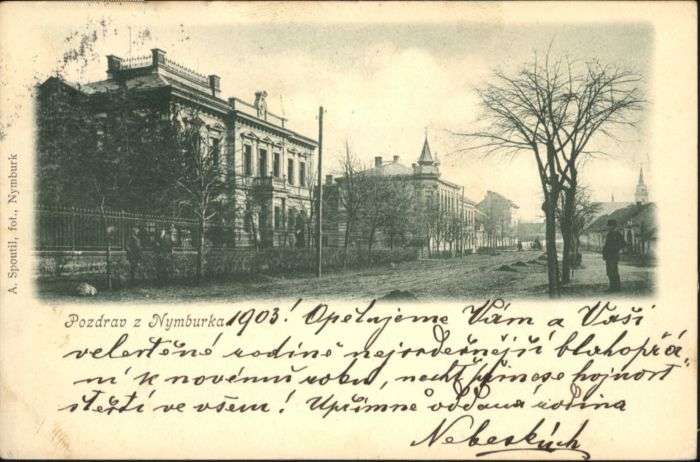 A. Spoutil, fot., Nymburk
Pozdrav z Nymburka 1903! Opětujeme Vám a Vaší
velectěné rodině nejsrdečnější blahopřá-
ní k novému roku, nechť přinese hojnost
štěstí ve všem! Upřímně oddaná rodina
Nebeských